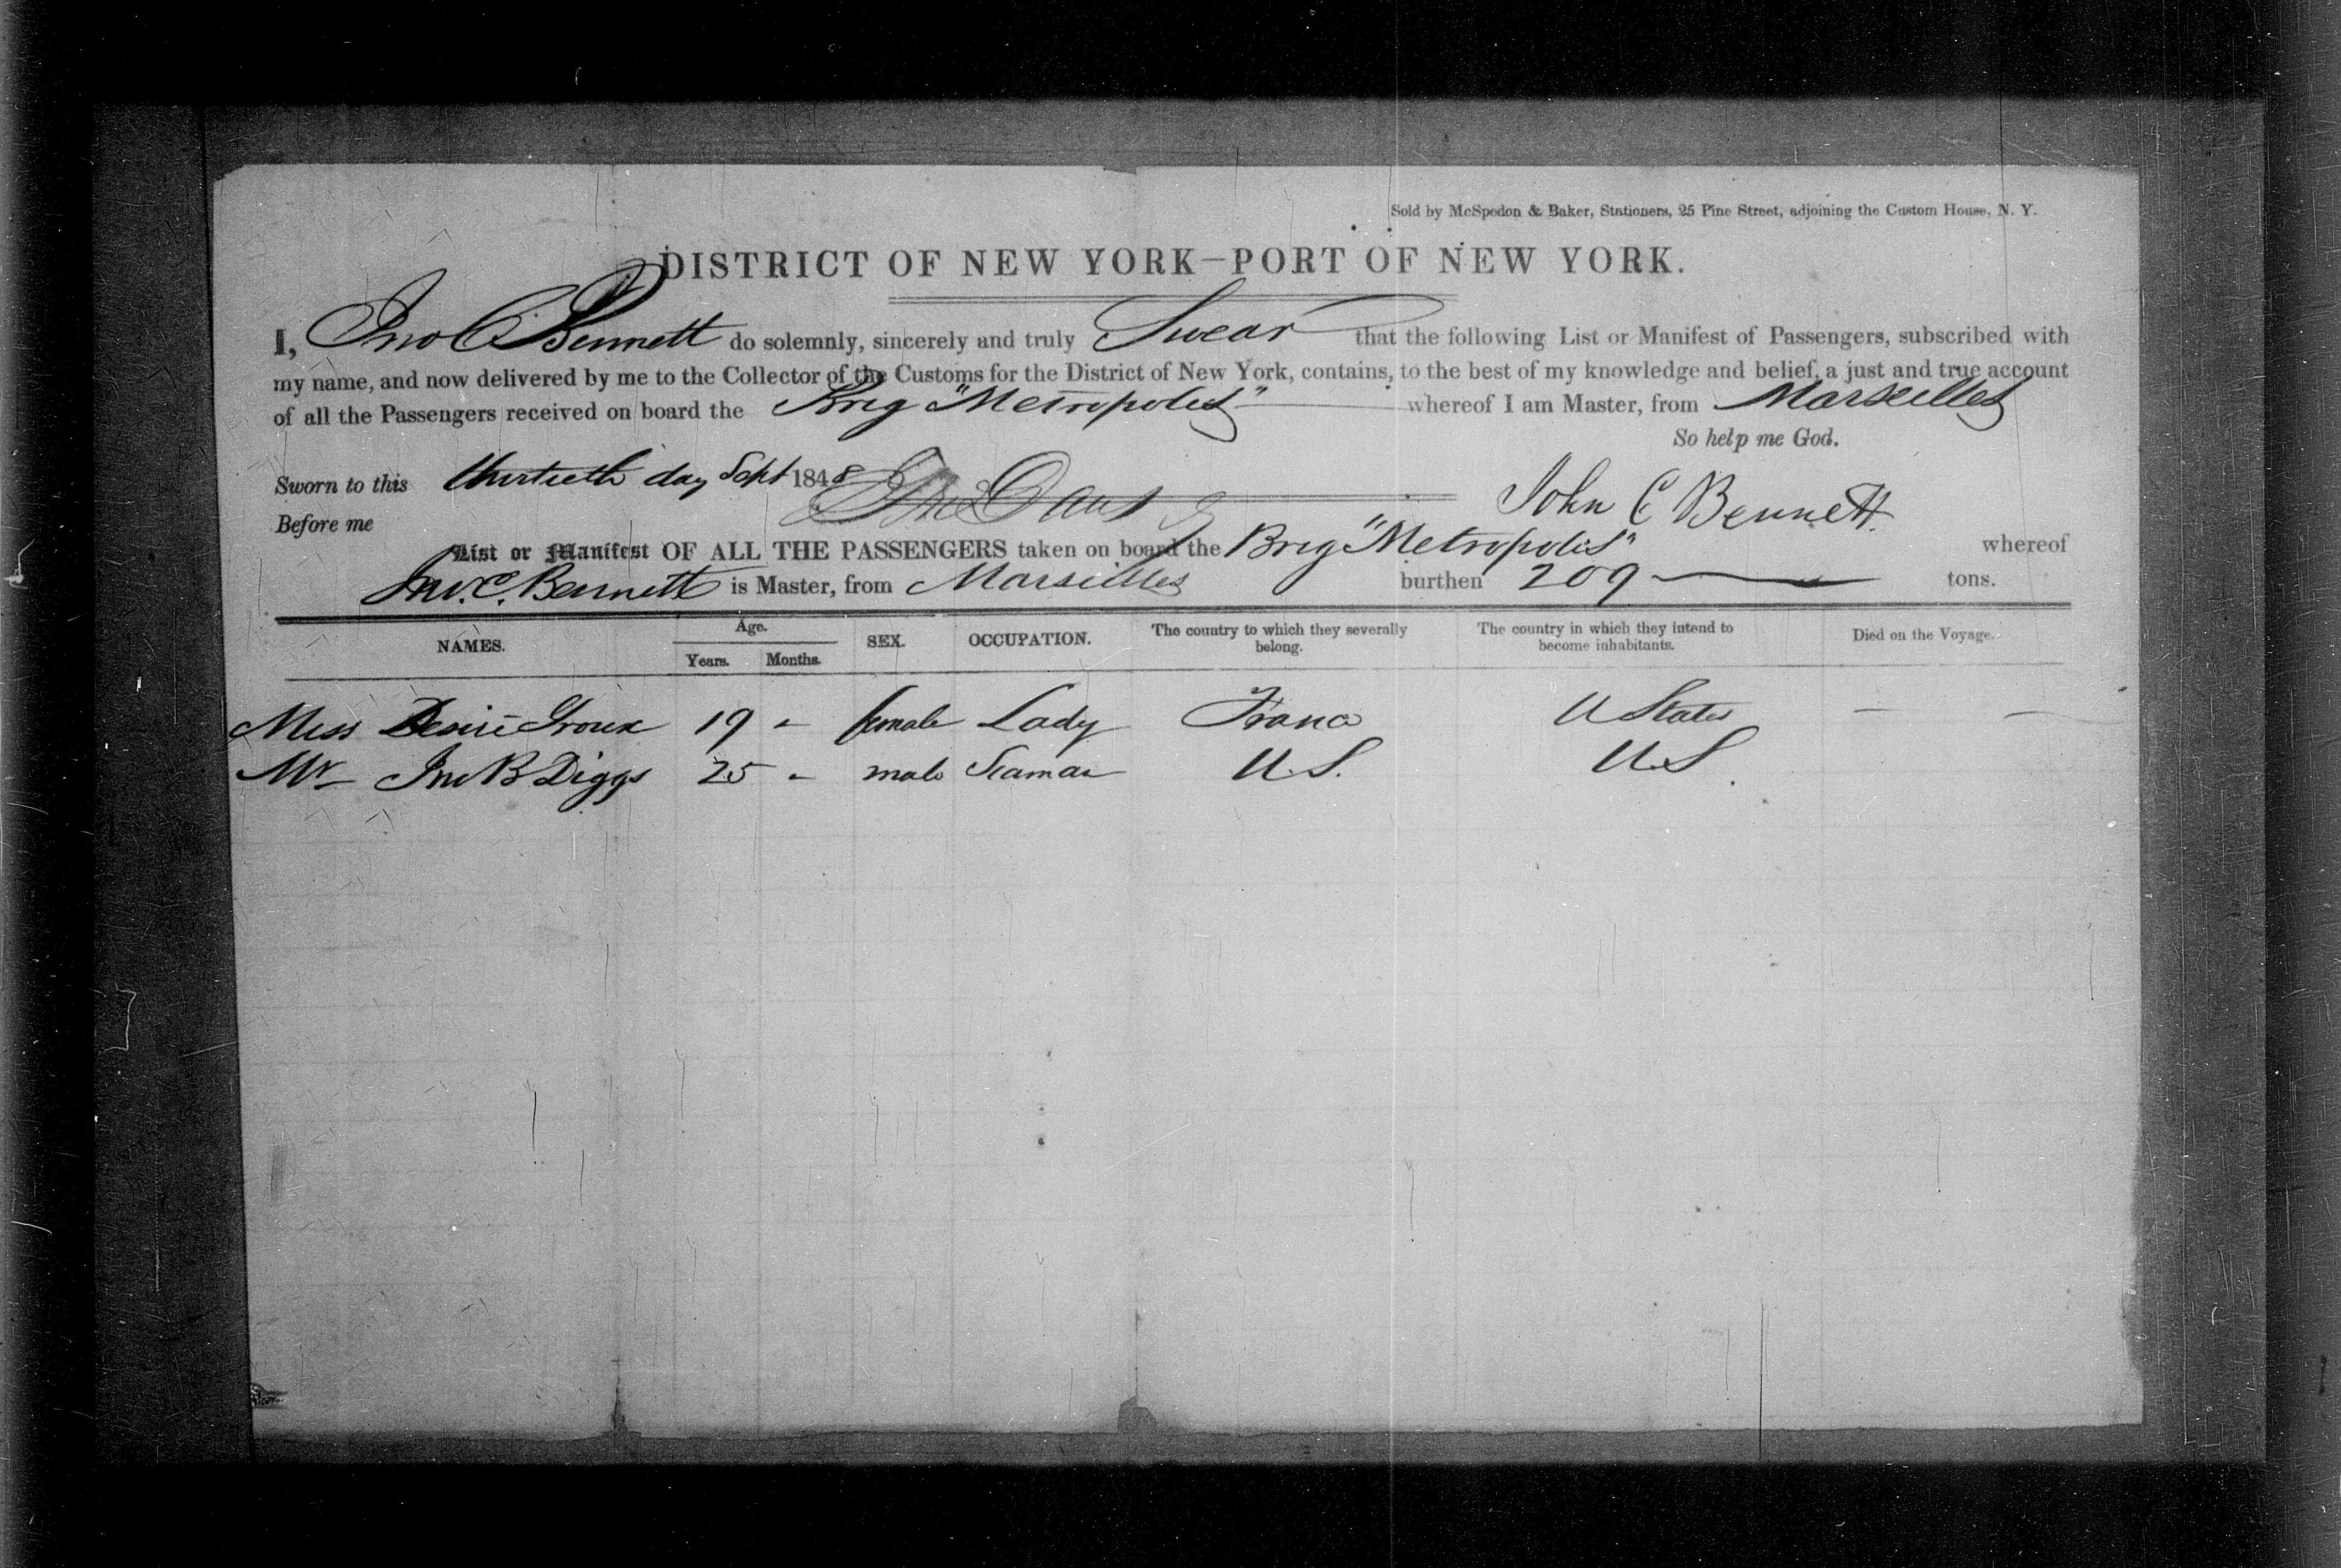 Sold by McSpedon & Baker, Stationers, 25 Pine Street, adjoining the Custom House, N. Y.
DISTRICT OF NEW YORK—PORT OF NEW YORK.
I, Jno C Bennett do solemnly, sincerely and truly Swear that the following List or Manifest of Passengers, subscribed with
my name, and now delivered by me to the Collector of the Customs for the District of New York, contains, to the best of my knowledge and belief, a just and true account
of all the Passengers received on board the Brig "Metropolis" whereof I am Master, from Marseilles
So help me God.
Sworn to this thirtieth day Sept 1848
John C Bennett
Before me
List or Manifest OF ALL THE PASSENGERS taken on board the Brig "Metropolis" whereof
Jno. C. Bennett is Master, from Marseilles burthen 209 tons.
NAMES. Age. Years. Months. SEX. OCCUPATION. The country to which they severally belong. The country in which they intend to become inhabitants. Died on the Voyage.
Miss Desiré 19 - female Lady France U States — —
Mr Jno B Diggs 25 - male Seaman U.S. U.S.